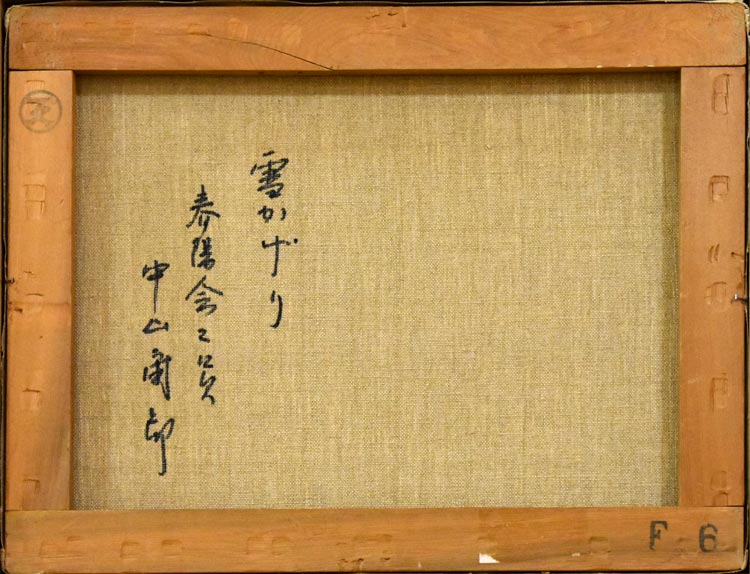 雪かげり
春陽会々員
中山爾郎
F 6